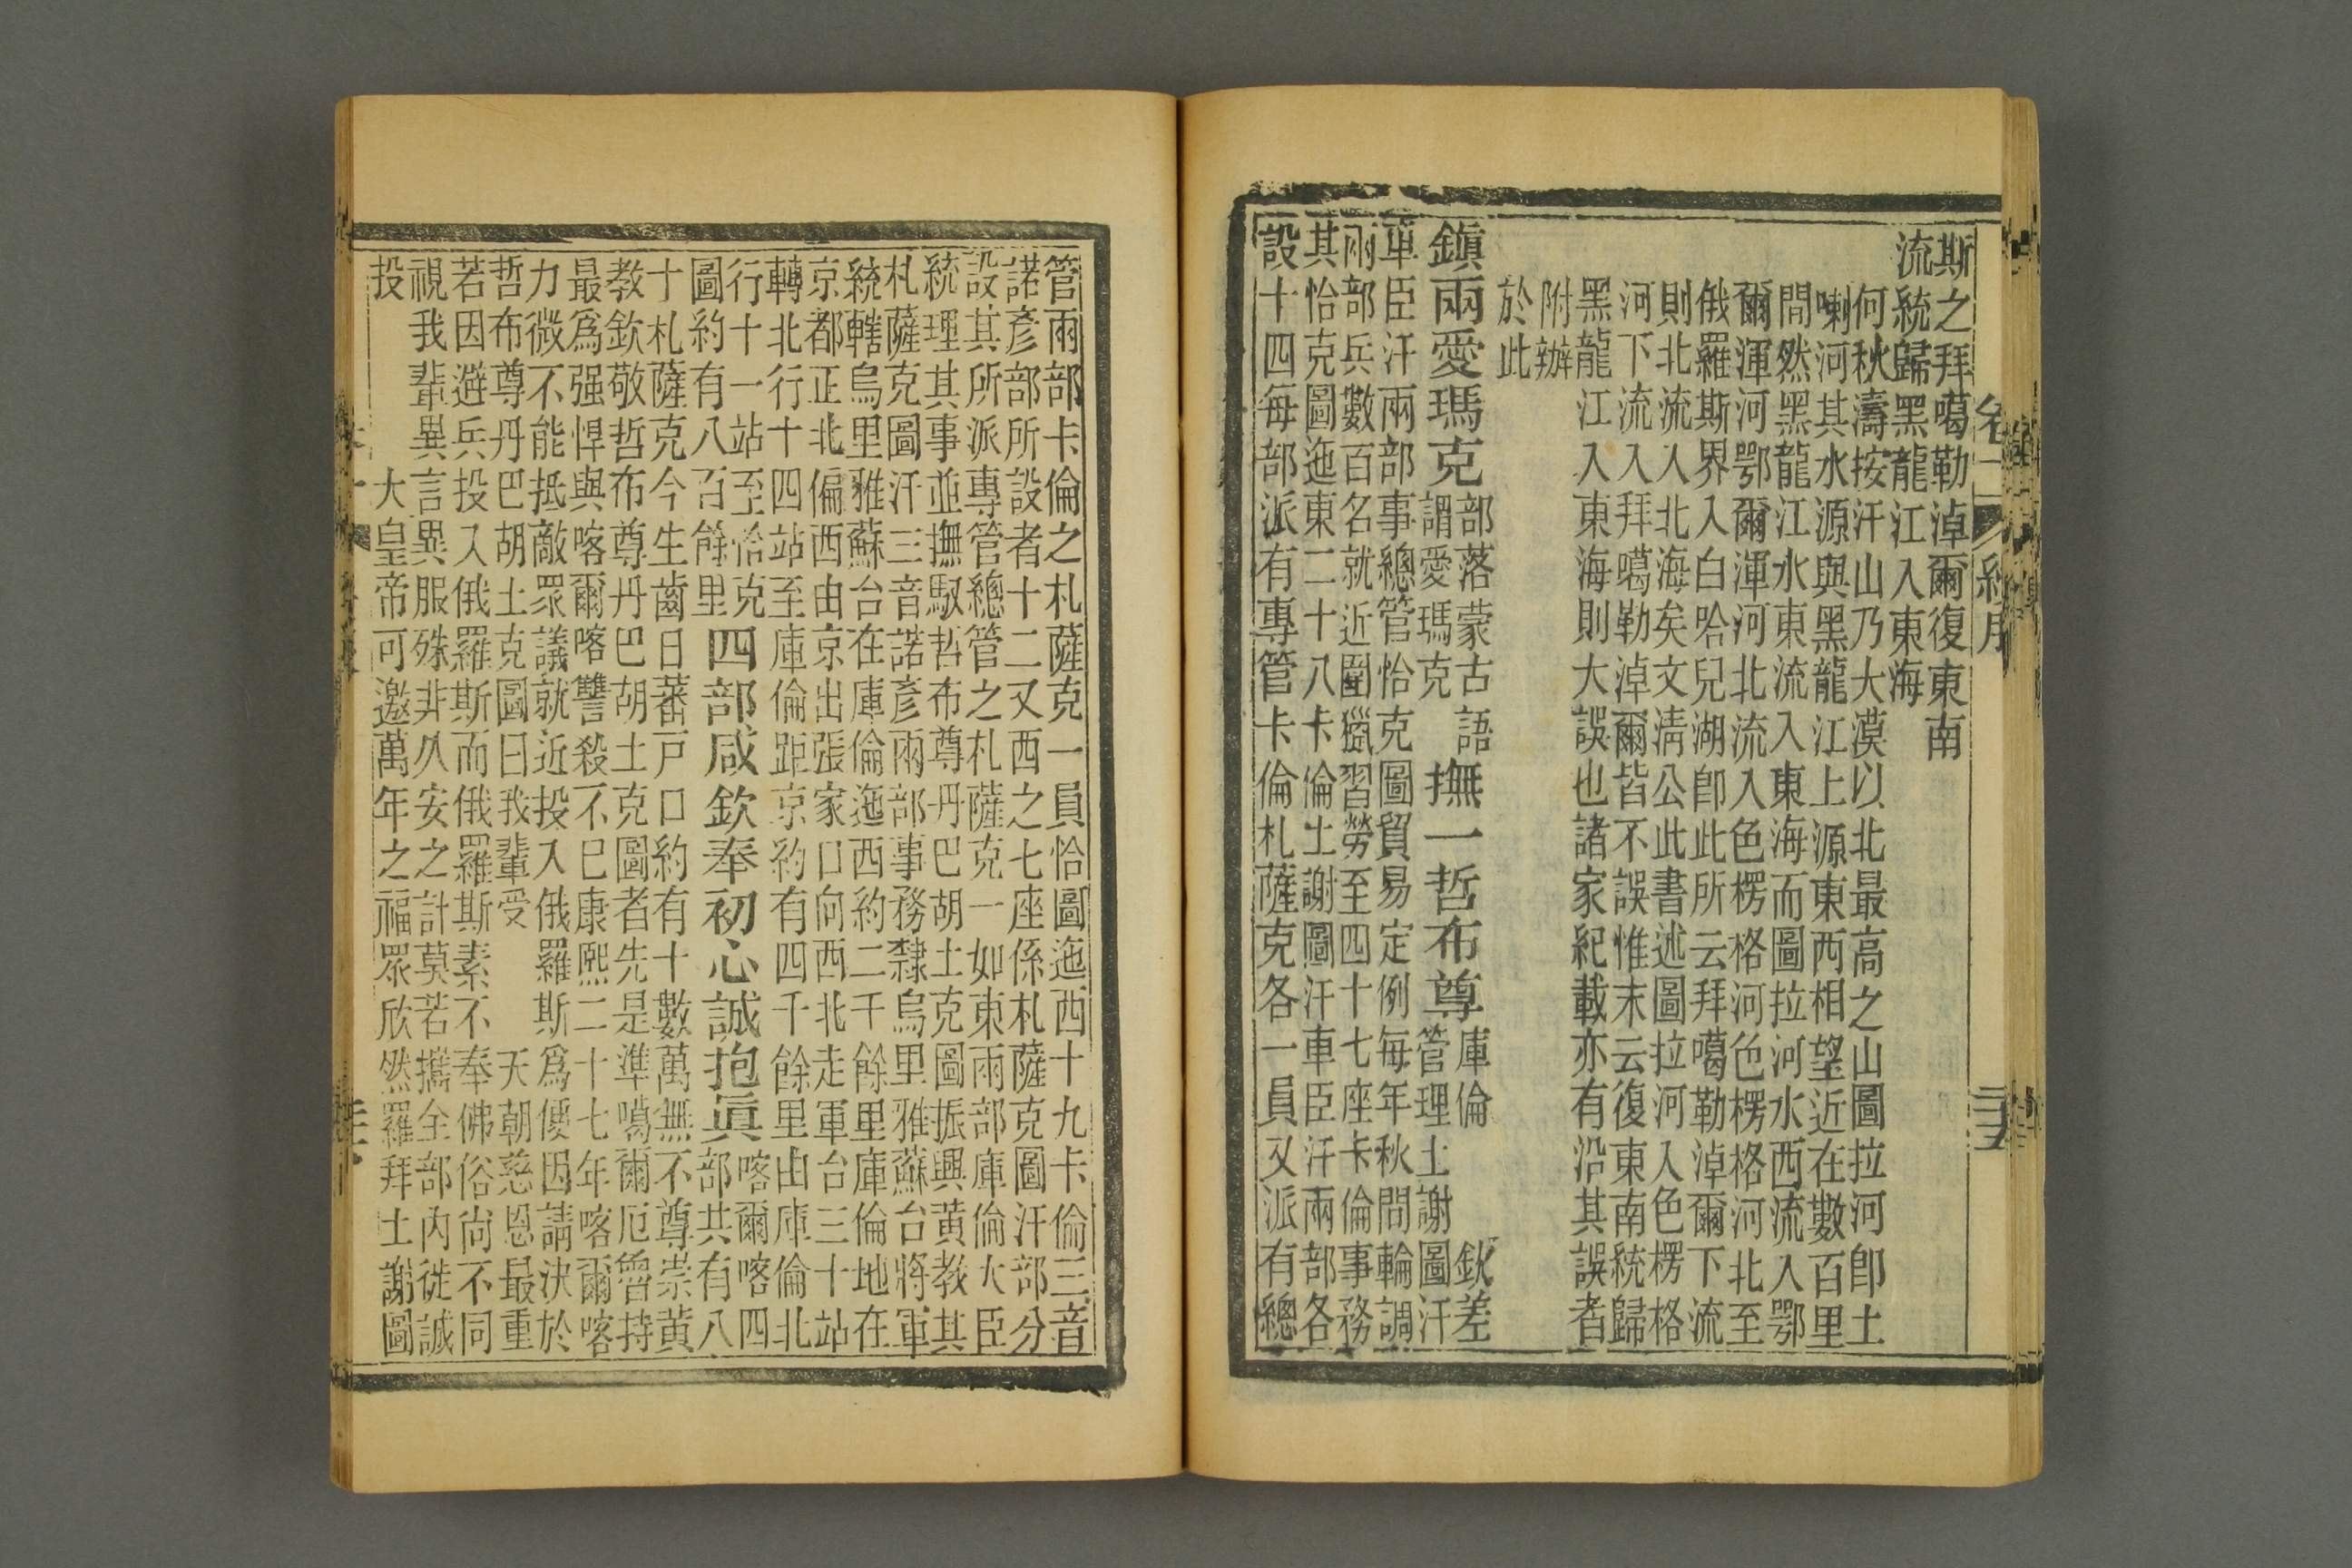 斯之拜噶勒淖爾復東南
流統歸黑龍江入東海
何秋濤按汗山乃大漠以北最高之山圖拉河卽土
喇河其水源與黑龍江上源東西相望近在數百里
間然黑龍江水東流入東海而圖拉河水西流入鄂
爾渾河鄂爾渾河北流入色楞格河色楞格河北至
俄羅斯界入白哈兒湖卽此所云拜噶勒淖爾下流
則北流入北海矣文清公此書述圖拉河入色楞格
河下流入拜噶勒淖爾皆不誤惟末云復東南統歸
黑龍江入東海則大誤也諸家紀載亦有沿其誤者
附辦
於此
鎮兩愛瑪克
部落蒙古語
謂愛瑪克
撫一哲布尊
庫倫 欽差
管理土謝圖汗
車臣汗兩部事總管恰克圖貿易定例每年秋間輪調
兩部兵數百名就近圍獵習勞至四十七座卡倫事務
其恰克圖迤東二十八卡倫土謝圖汗車臣汗兩部各
設十四每部派有專管卡倫札薩克各一員又派有總
卷二
綏服
三五
管兩部卡倫之札薩克一員恰圖迤西十九卡倫三音
諾彥部所設者十二又西之七座係札薩克圖汗部分
設其所派專管總管之札薩克一如東兩部庫倫大臣
統理其事並撫馭哲布尊丹巴胡土克圖振興黃教其
札薩克圖汗三音諾彥兩部事務隸烏里雅蘇台將軍
統轄烏里雅蘇台在庫倫迤西約二千餘里庫倫地在
京都正北偏西由京出張家口向西北走軍台三十站
轉北行十四站至庫倫距京約有四千餘里由庫倫北
行十一站至恰克
圖約有八百餘里
四部咸欽奉初心誠抱眞
喀爾喀四
部共有八
十札薩克今生齒日蕃戶口約有十數萬無不尊崇黃
教欽敬哲布尊丹巴胡土克圖者先是準噶爾厄魯持
最爲强悍與喀爾喀讐殺不巳康熙二十七年喀爾喀
力微不能抵敵眾議就近投入俄羅斯爲便因請決於
哲布尊丹巴胡土克圖曰我輩受 天朝慈恩最重
若因避兵投入俄羅斯而俄羅斯素不奉佛俗尙不同
視我輩異言異服殊非久安之計莫若攜全部內徙誠
投 大皇帝可邀萬年之福眾欣然羅拜土謝圖